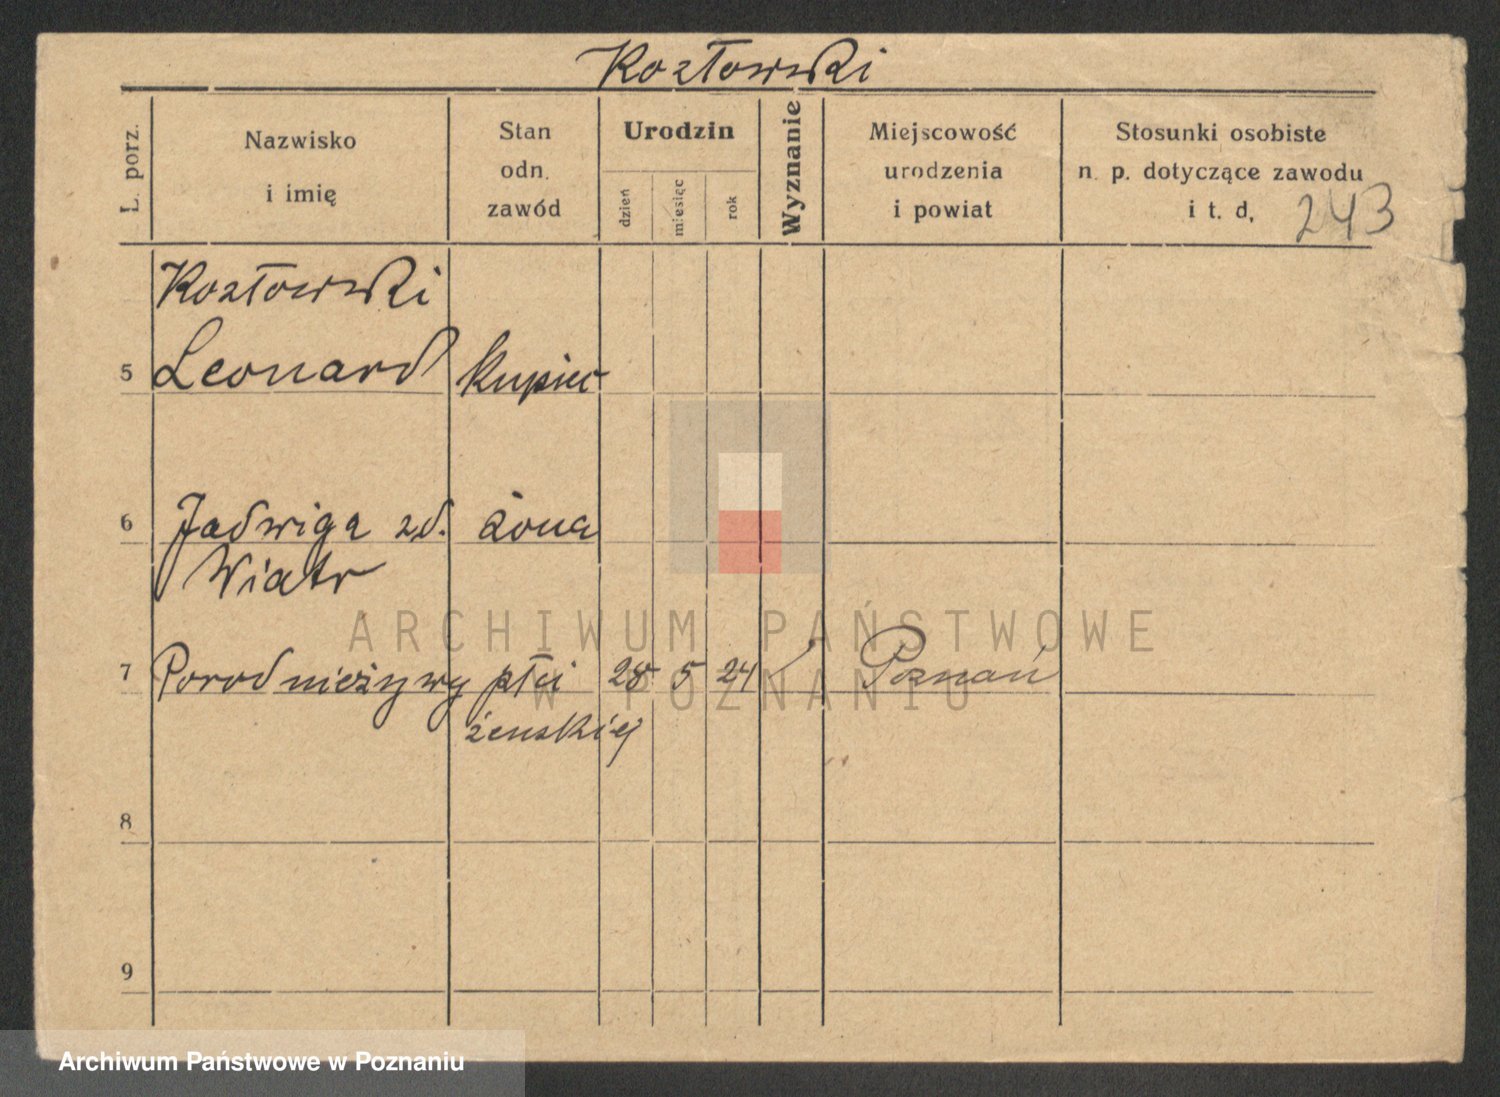 Kozłowski
L. porz.
Nazwisko
i imię
Stan
odn.
zawód
Urodzin
dzień
miesięc
rok
Wyznanie
Miejscowość
urodzenia
i powiat
Stosunki osobiste
n. p. dotyczące zawodu
i t. d,
243
Kozłowski
5 Leonard kupiec
6 Jadwiga zd. żona
Wiatr
7 Poród nieżywy płci 28 5 24 Poznań
żeńskiej
8
9
ARCHIWUM PAŃSTWOWE
W POZNANIU
Archiwum Państwowe w Poznaniu